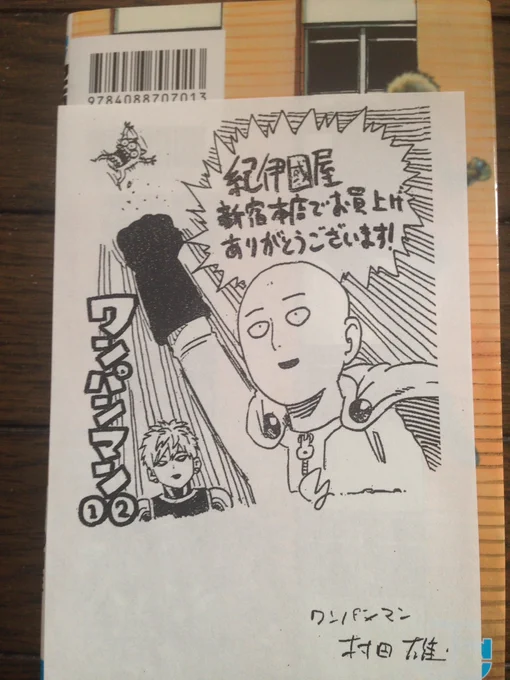 9784088707013
紀伊國屋
新宿本店でお買上げ
ありがとうございます!
ワンパンマン
①②
y.murata
ワンパンマン
村田 雄